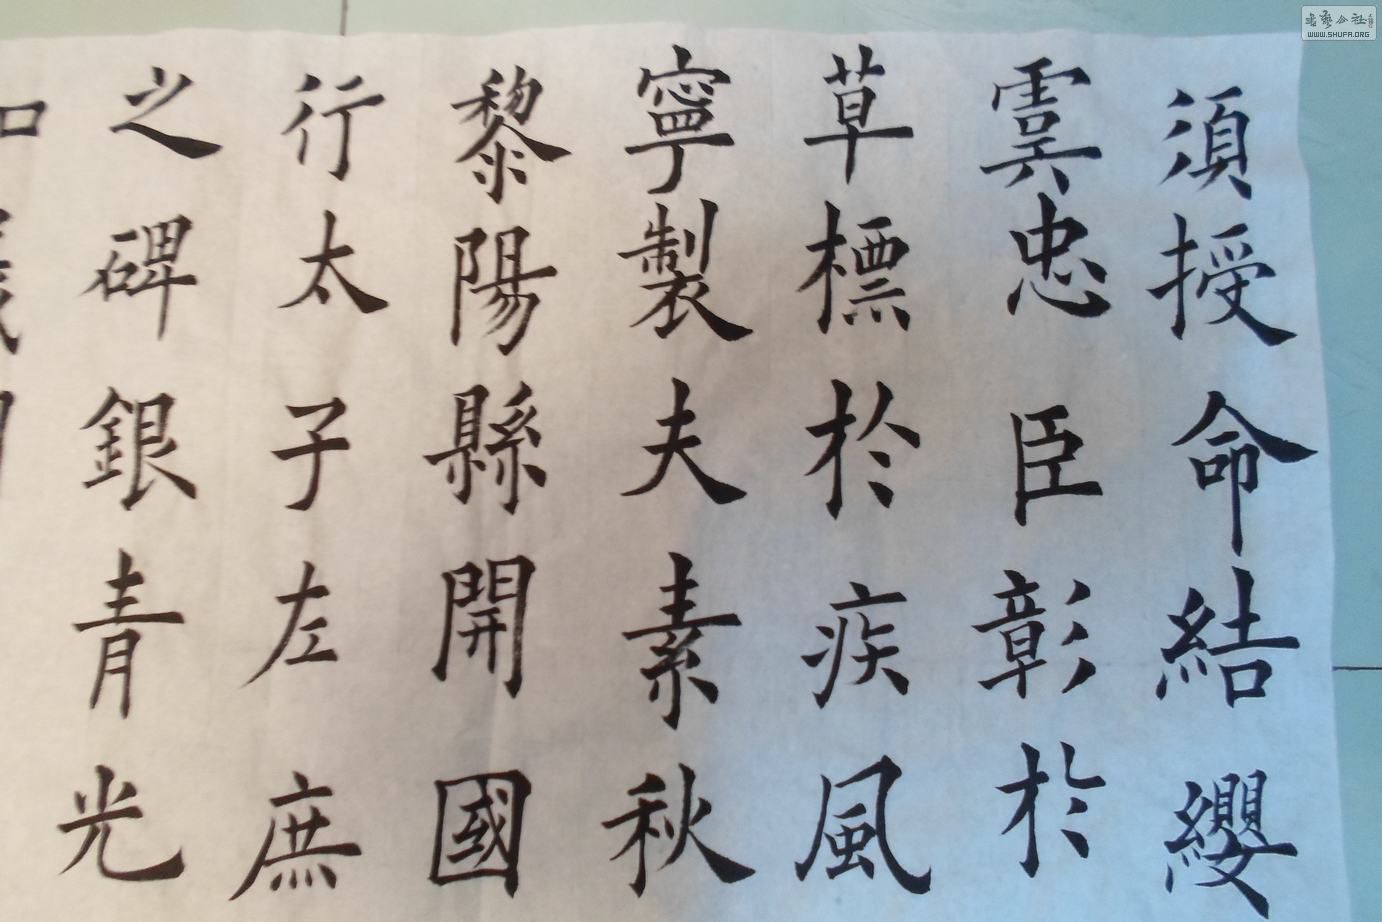 須授命結纓
虞忠臣彰於
草標於疾風
寧製夫素秋
黎陽縣開國
行太子左庶
之碑銀青光
WWW.SHUFA.ORG